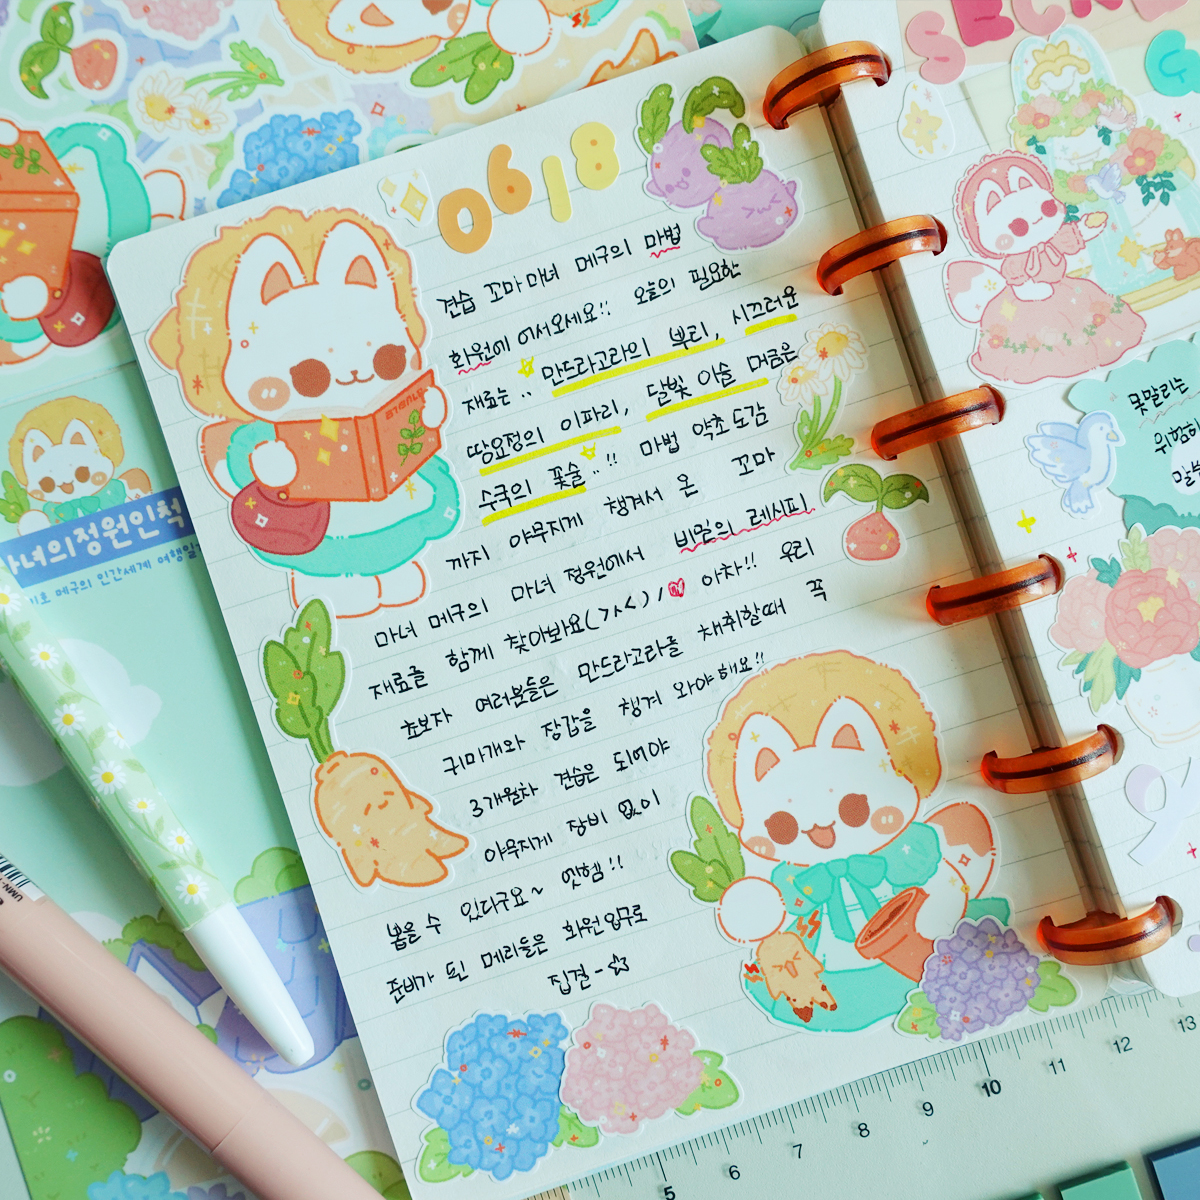 0618
견습 꼬마 마녀 메구의 마법
화원에 어서오세요!! 오늘의 필요한
재료는.. 만드라고라의 뿌리, 시끄러운
땅요정의 이파리, 달빛 이슬 머금은
수국의 꽃술..!! 마법 약초 도감
까지 야무지게 챙겨서 온 꼬마
마녀 메구의 마녀 정원에서 비밀의 레시피
재료를 함께 찾아봐요(>ㅅ<)/♥ 아차!! 우리
초보자 여러분들은 만드라고라를 채취할때 꼭
귀마개와 장갑을 챙겨 와야해요!!
3개월차 견습은 되어야
야무지게 장비 없이
뽑을 수 있다구요~ 엣헴!!
준비가 된 메리들은 화원 입구로
집결-☆
SECRE
못말리는
위험하
말썽
마녀의정원인척
메구의 인간세계 여행일
5 6 7 8 9 10 11 12 13